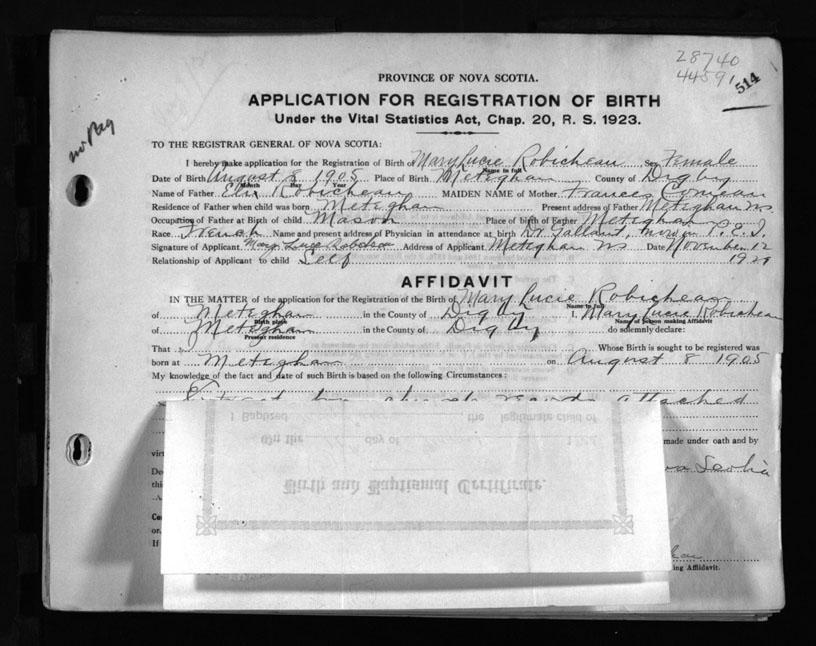 28740
44591
514
no Reg
PROVINCE OF NOVA SCOTIA.
APPLICATION FOR REGISTRATION OF BIRTH
Under the Vital Statistics Act, Chap. 20, R. S. 1923.
TO THE REGISTRAR GENERAL OF NOVA SCOTIA:
I hereby make application for the Registration of Birth of Mary Lucie Robicheau Sex Female
Name in full
Date of Birth August 8 1905 Place of Birth Meteghan County of Digby
Month Day Year
Name of Father Robicheau MAIDEN NAME of Mother Frances Comeau
Residence of Father when child was born Meteghan Present address of Father Meteghan NS
Occupation of Father at Birth of child Mason Place of Birth of Father Meteghan
Race French Name and present address of Physician in attendance at birth Dr Gallant, P.E.I.
Signature of Applicant Mary Lucie Address of Applicant Meteghan NS Date November 12
Relationship of Applicant to child Self 192
AFFIDAVIT
IN THE MATTER of the application for the Registration of the Birth of Mary Lucie Robicheau
Name in full
of Meteghan in the County of Digby I, Mary Lucie Robicheau
Birth place Name of person making Affidavit
of Meteghan in the County of Digby do solemnly declare:
Present residence
That Whose Birth is sought to be registered was
born at Meteghan on August 8 1905
My knowledge of the fact and date of such Birth is based on the following Circumstances:
Extract from church records attached
I Baptized the legitimate child of
made under oath and by
On the day of
virt
Nova Scotia
De
this
Birth and Baptismal Certificate.
Co
or
If
ing Affidavit.